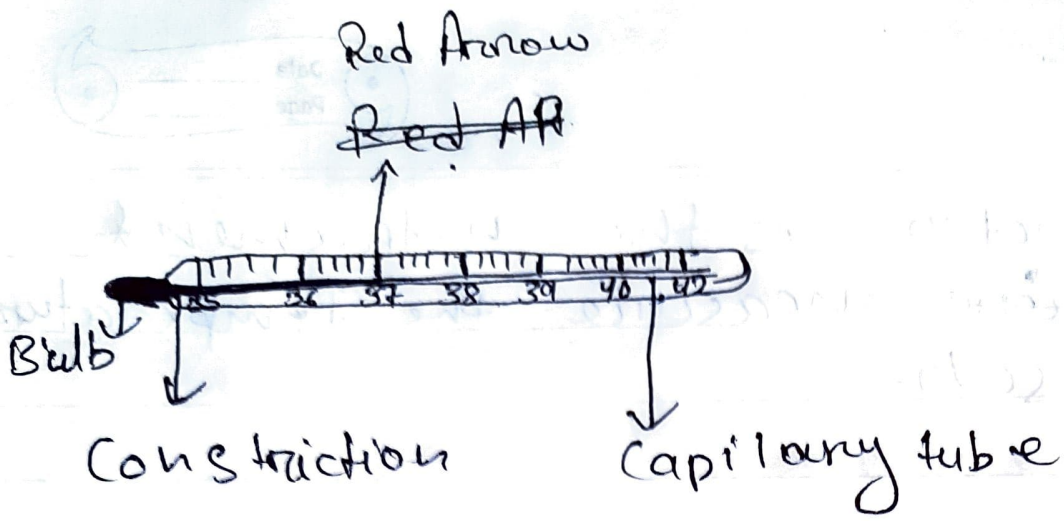 Red Arrow
Red AR
35 36 37 38 39 40 42
Bulb
Constriction
Capilary tube